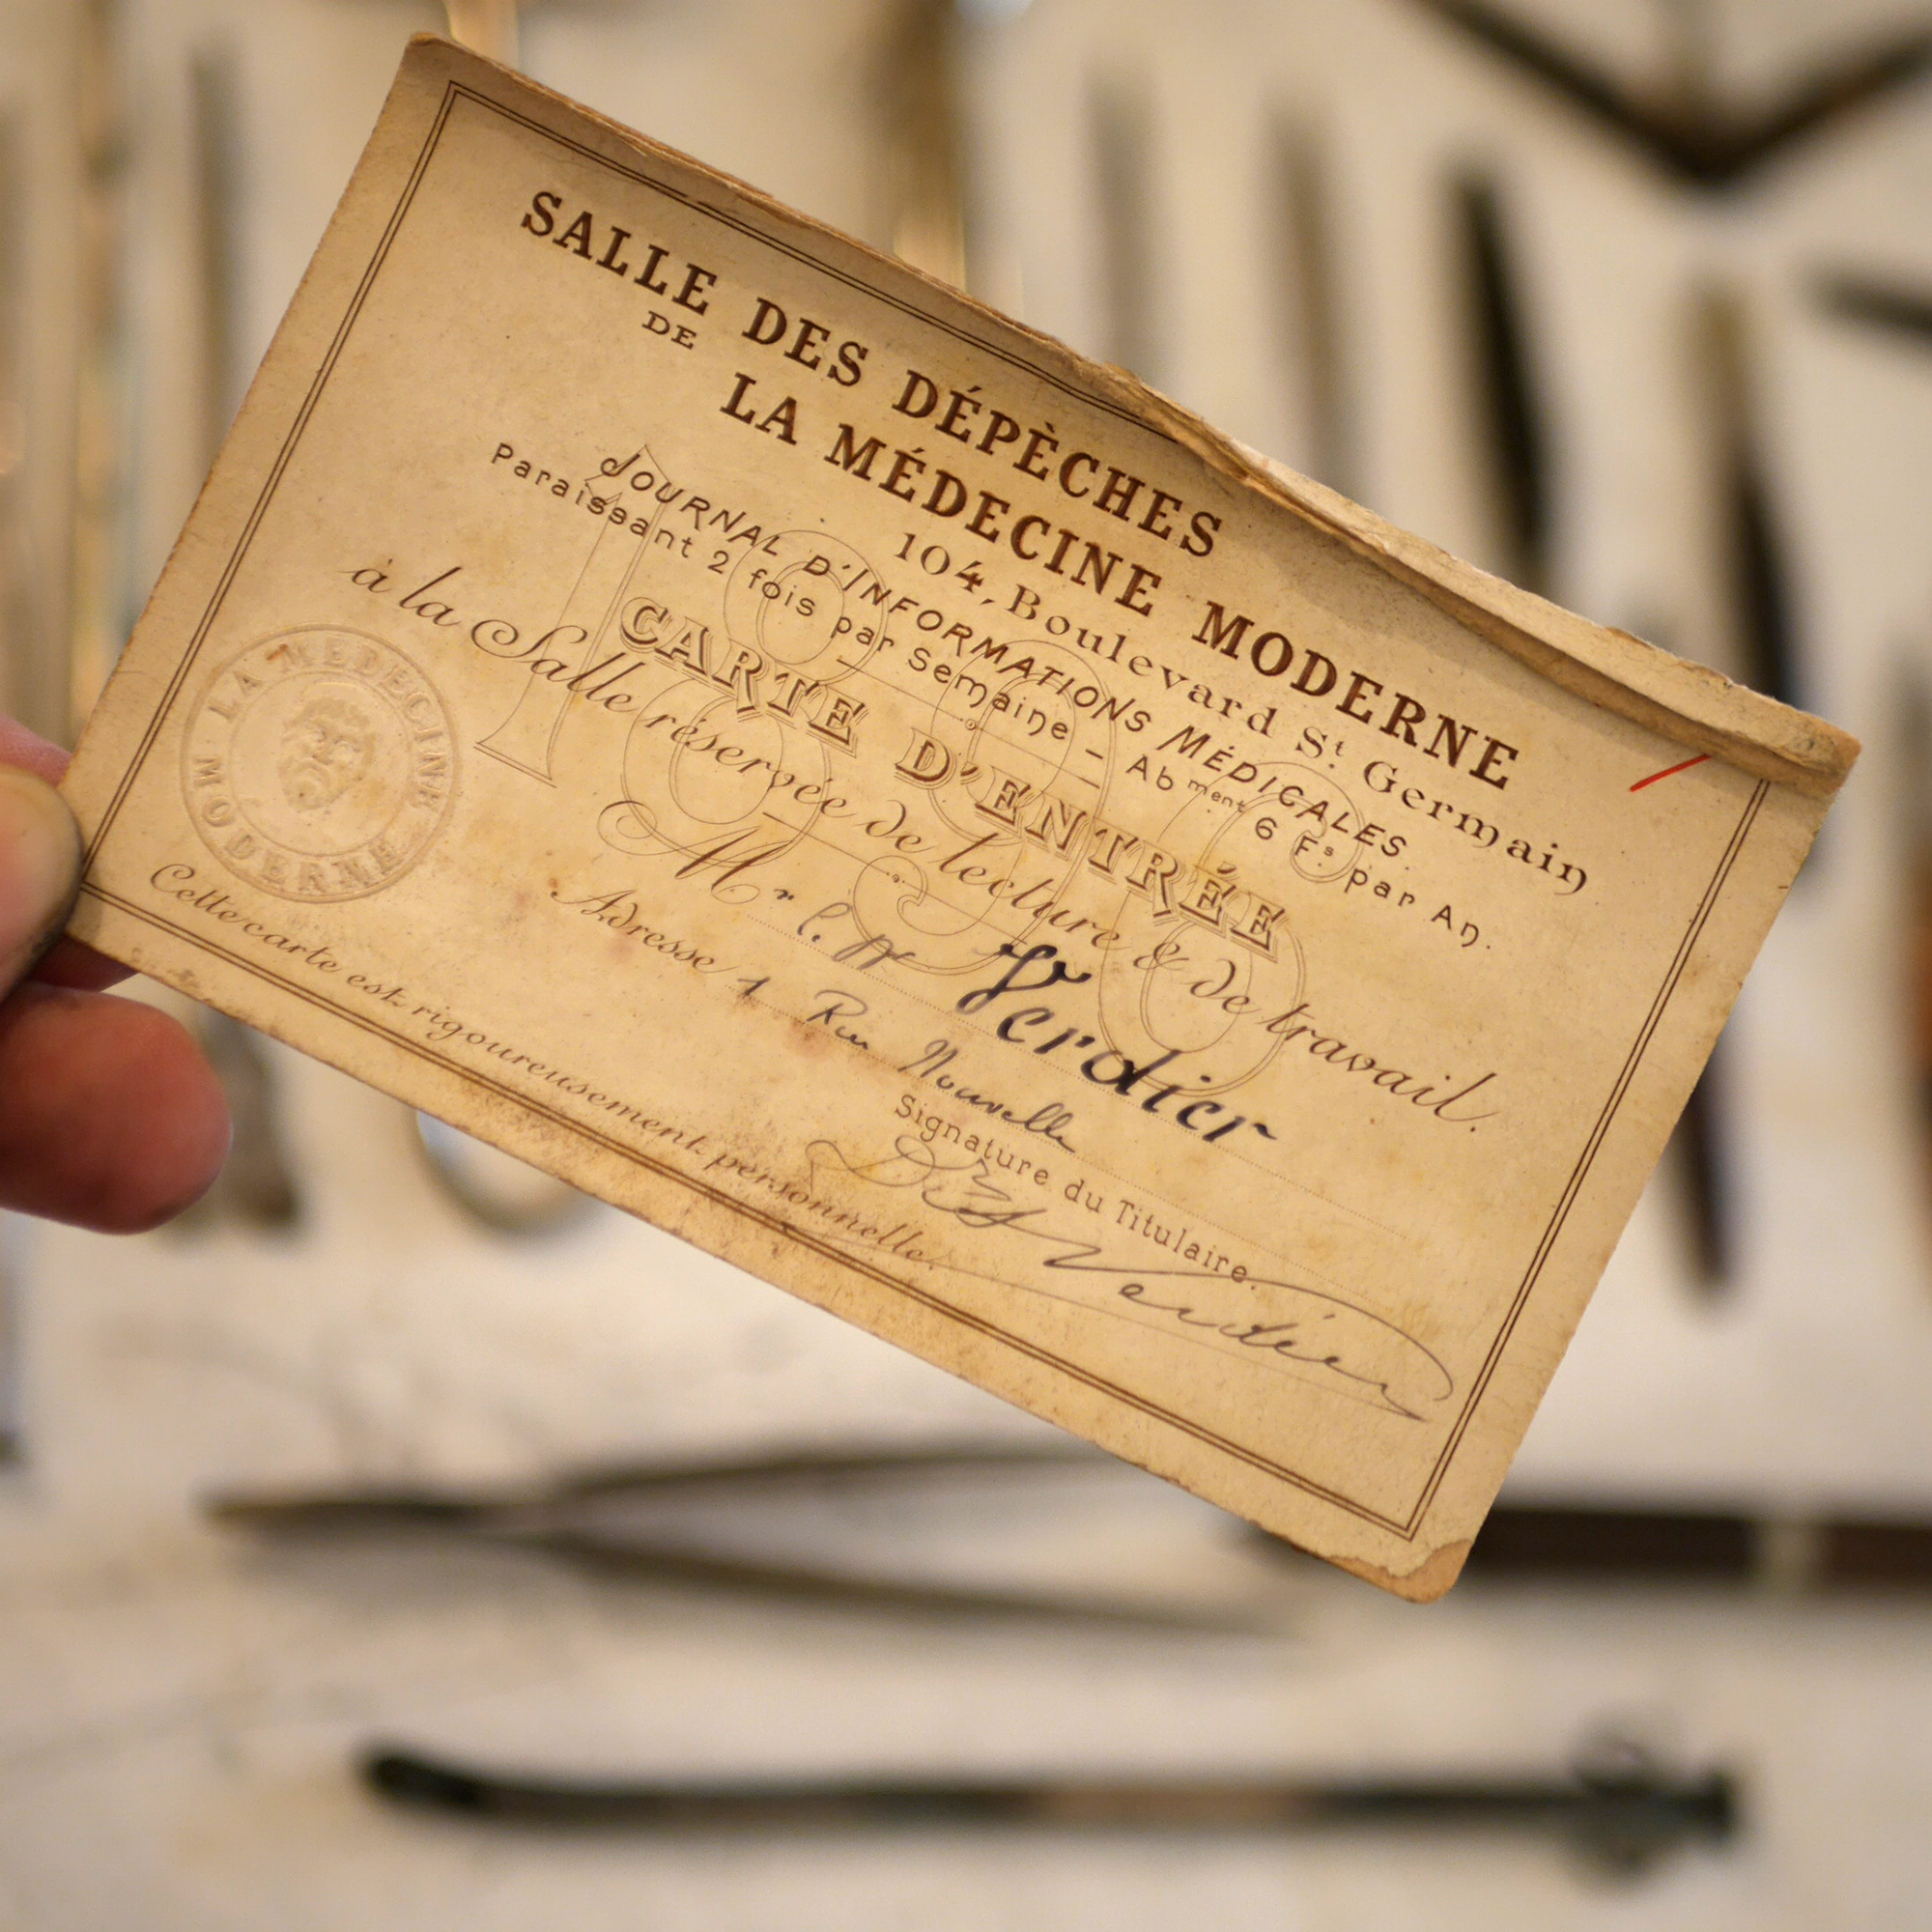 SALLE DES DÉPÈCHES
DE
LA MÉDECINE MODERNE
104, Boulevard St. Germain
JOURNAL D'INFORMATIONS MÉDICALES
Paraissant 2 fois par Semaine – Abment 6 Fs. par An.
1896
CARTE D'ENTRÉE
à la Salle réservée de lecture & de travail.
Mr Verdier
Adresse 1 Rue Nouvelle
Signature du Titulaire.
Verdier
LA MEDECINE MODERNE
Cette carte est rigoureusement personnelle.